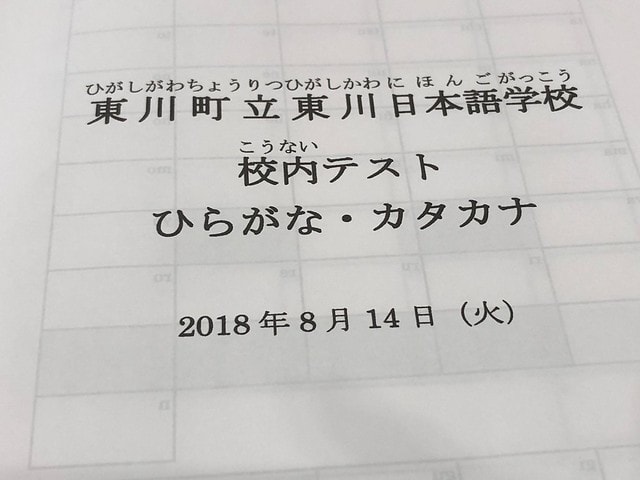 ひがしがわちょうりつひがしかわにほんごがっこう
東川町立東川日本語学校
こうない
校内テスト
ひらがな・カタカナ
2018年8月14日（火）